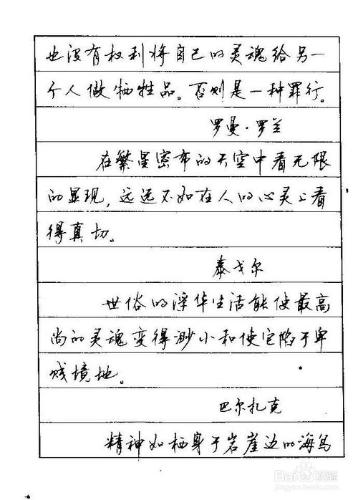 也没有权利将自己的灵魂给另一
个人做牺牲品。否则是一种罪行。
罗曼·罗兰
在繁星密布的天空中看无限
的显现，远远不如在人的心灵上看
得真切。
泰戈尔
世俗的浮华生活能使最高
尚的灵魂变得渺小和使它陷于卑
贱境地。
巴尔扎克
精神如栖身于岩崖边的海鸟
Baidu经验